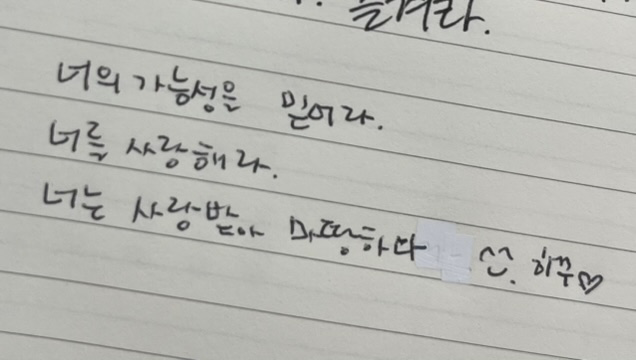 즐겨라.
너의 가능성을 믿어라.
너를 사랑해라.
너는 사랑받아 마땅하다 ^^. 히꾸♡